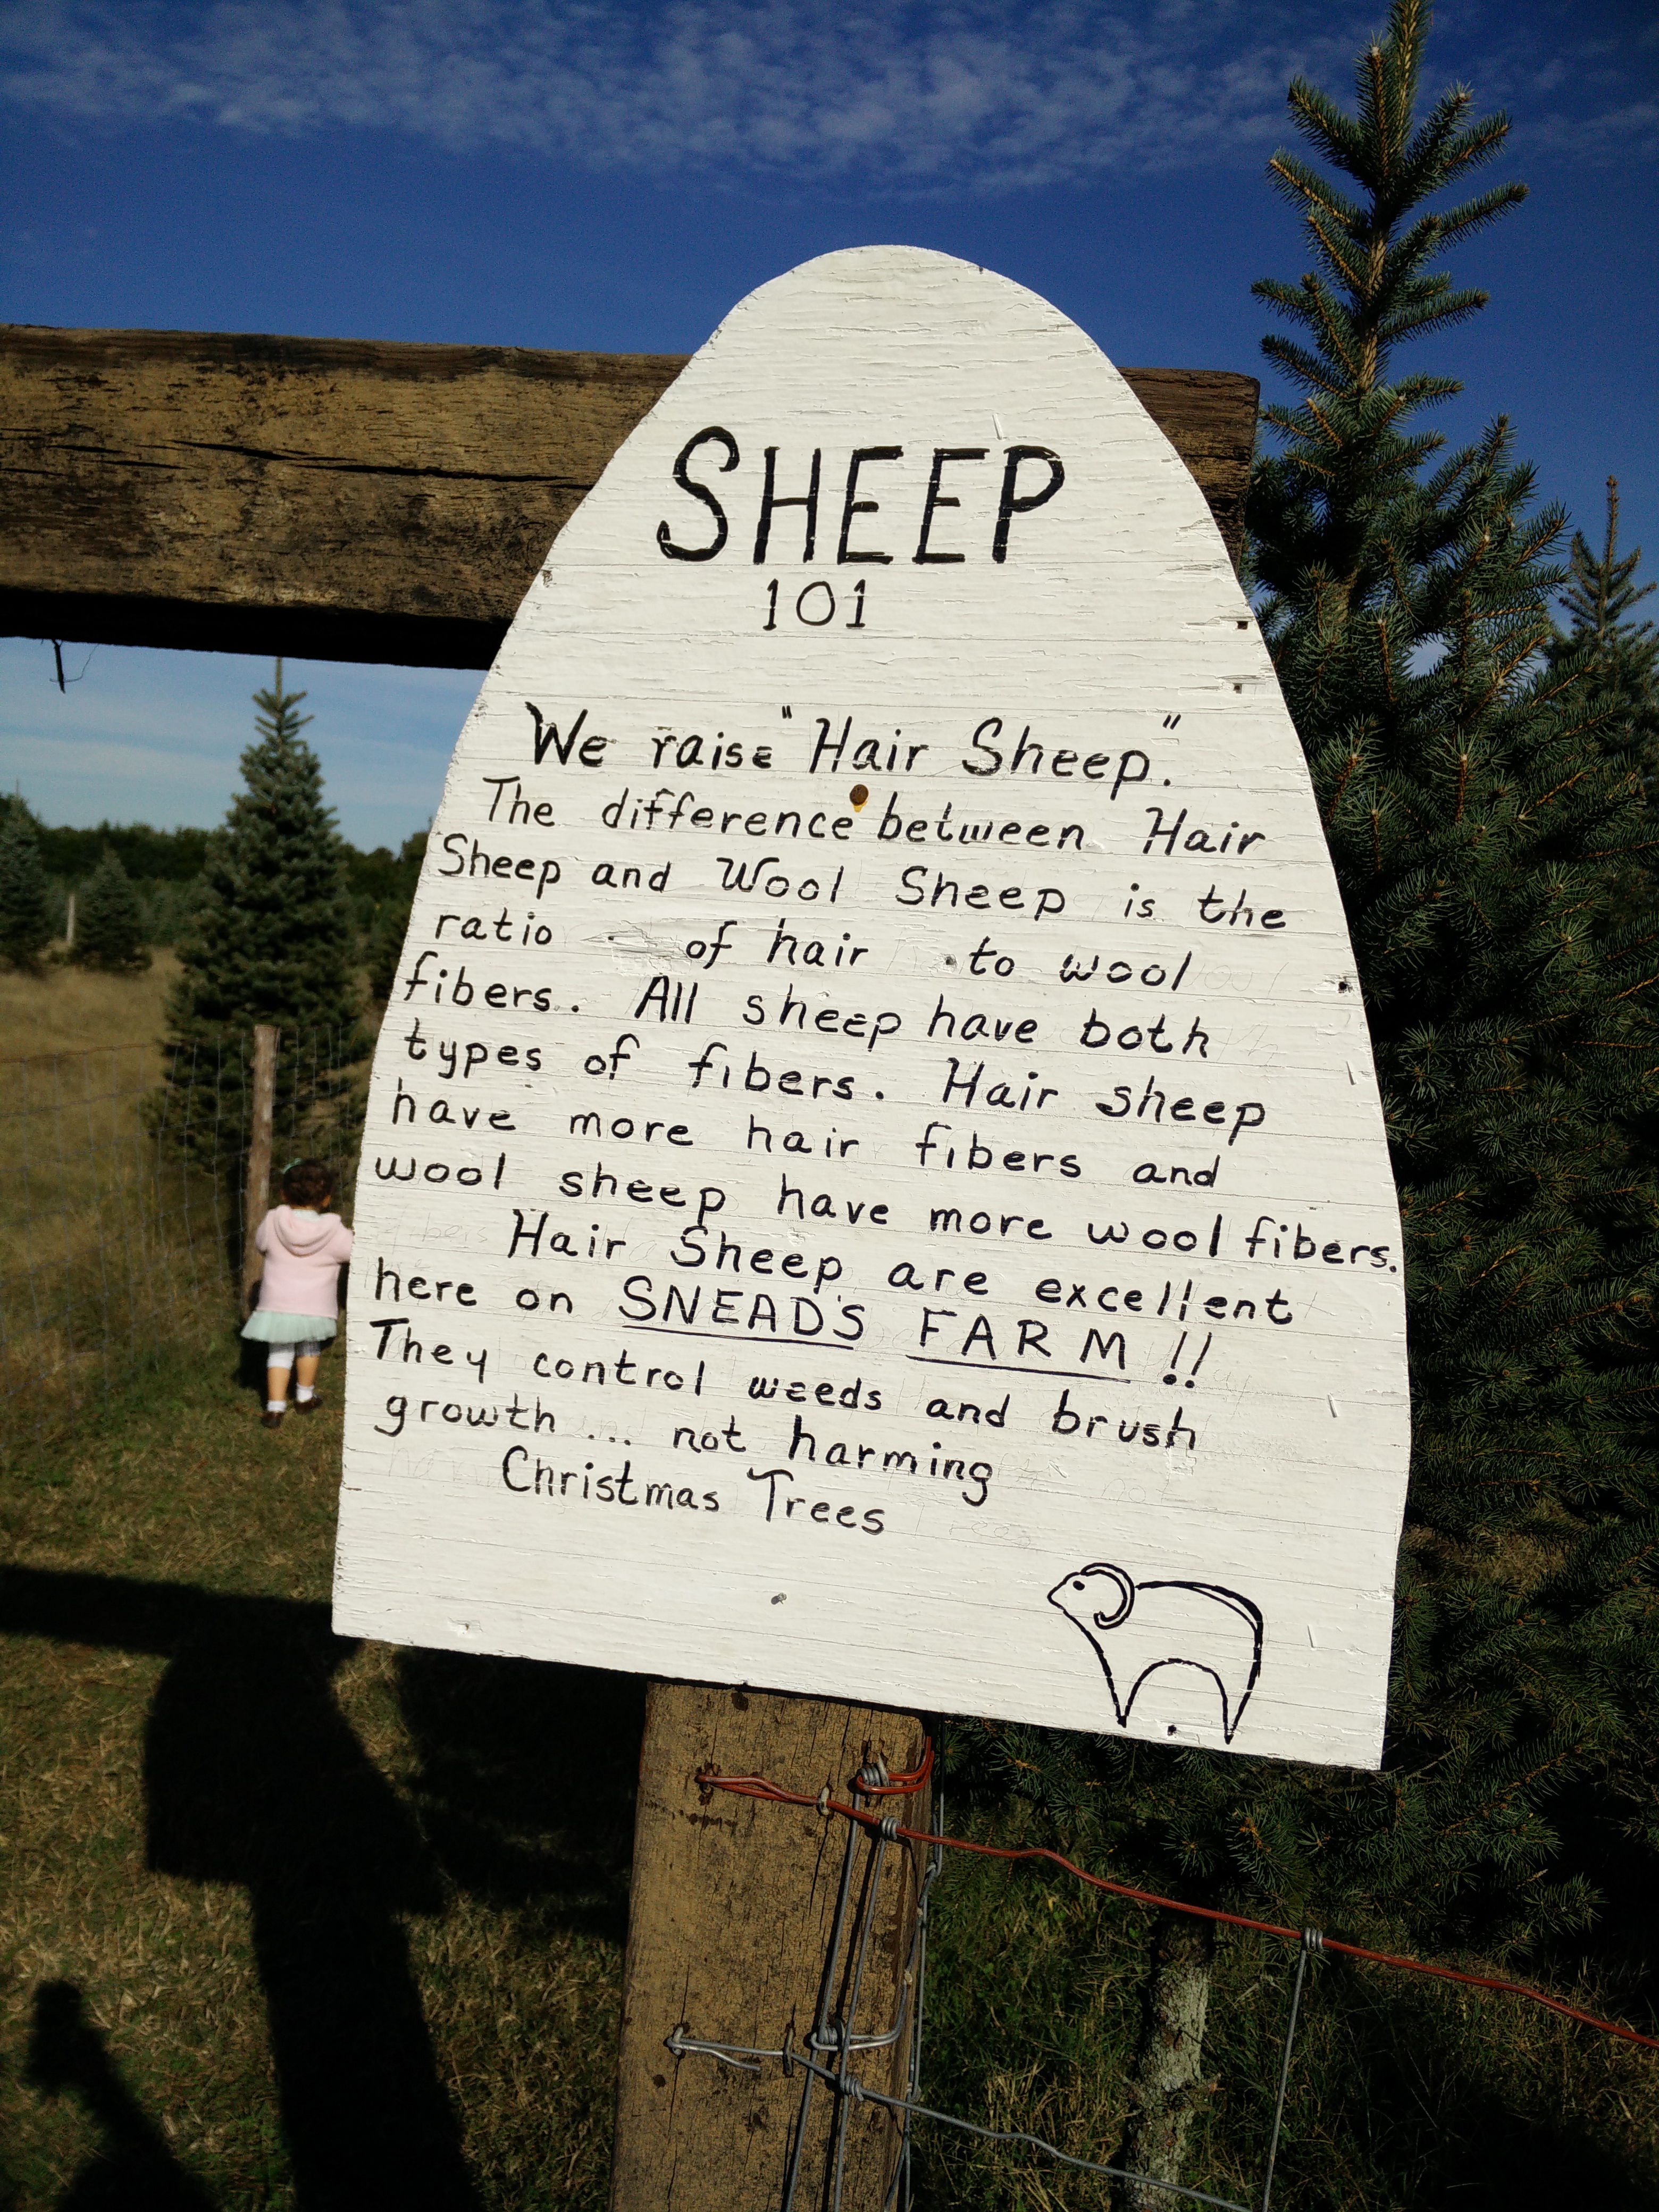 SHEEP
101
We raise "Hair Sheep."
The difference between Hair
Sheep and Wool Sheep is the
ratio of hair to wool
fibers. All sheep have both
types of fibers. Hair sheep
have more hair fibers and
wool sheep have more wool fibers.
Hair Sheep are excellent
here on SNEAD'S FARM !!
They control weeds and brush
growth ... not harming
Christmas Trees